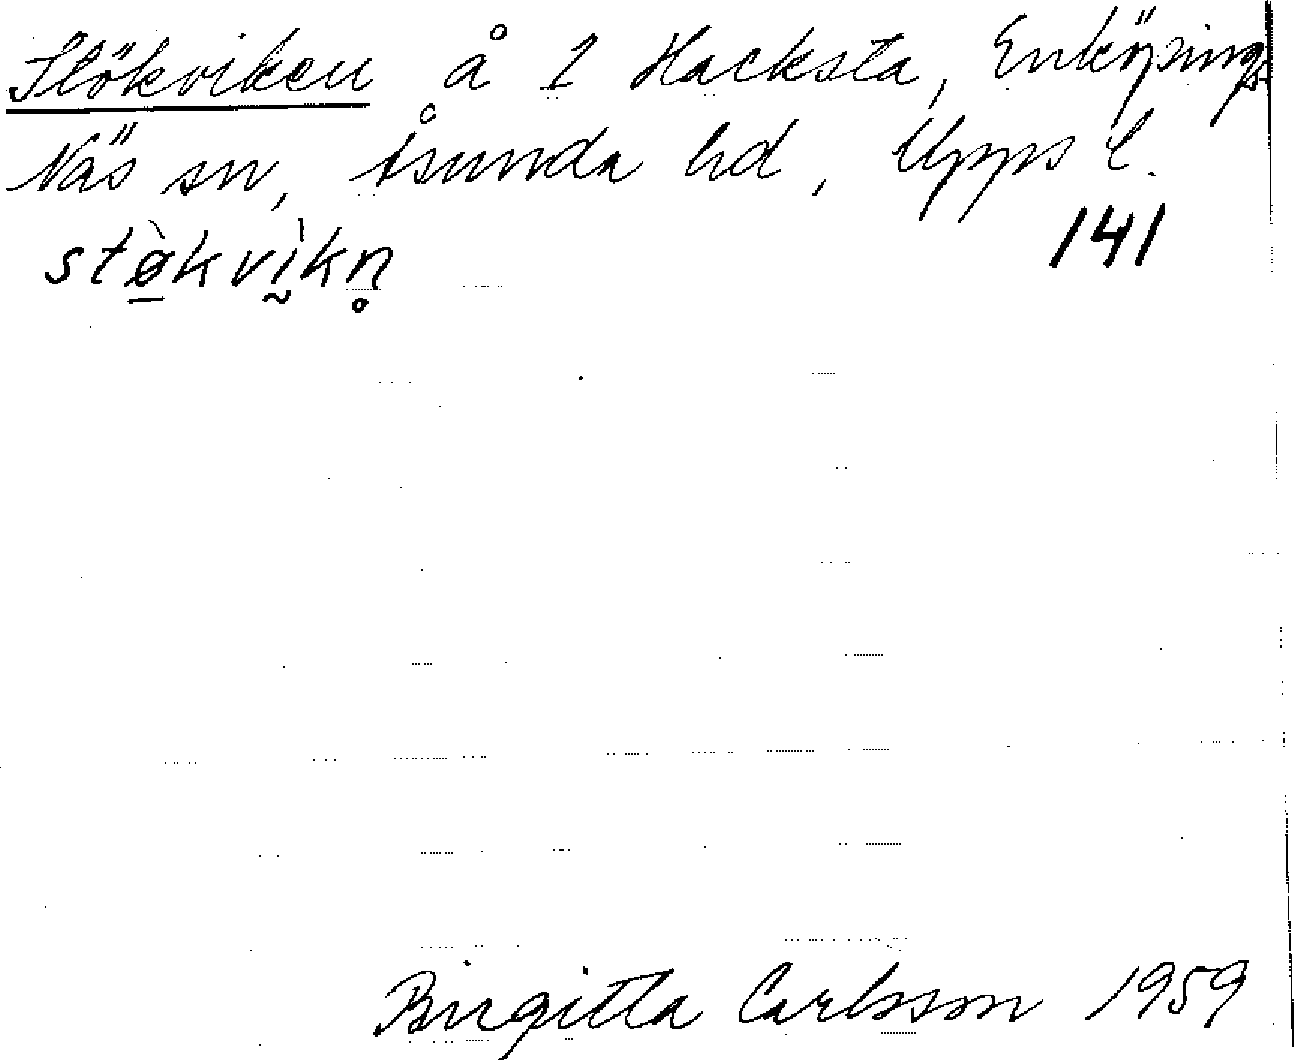 Stökviken å 1 Hacksta, Enköpings
Näs sn, Åsunda hd, Upps l.
stø̀kvìkn̥ 141
Birgitta Carlsson 1959